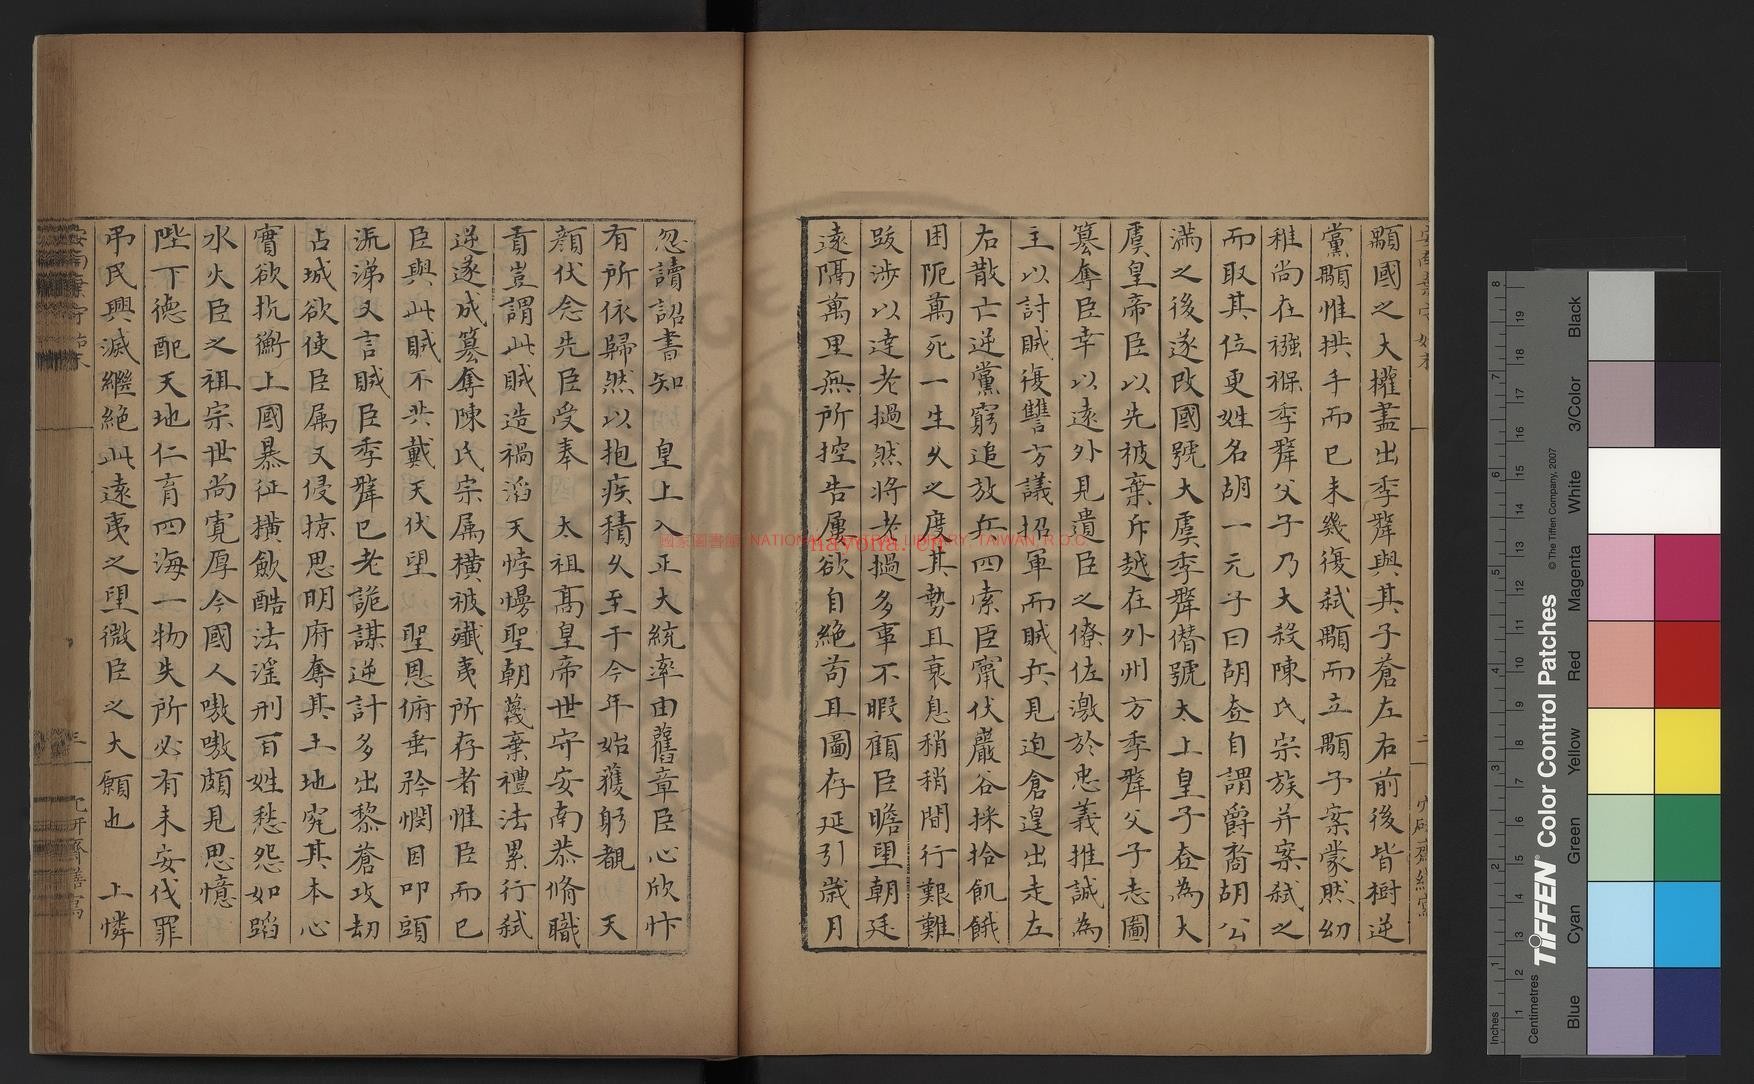 顒國之大權盖出季犛與其子蒼左右前後皆樹逆
黨顒惟拱手而已未幾復弑顒而立顒子𭩠蒙然幼
稚尚在襁褓季犛父子乃大殺陳氏宗族并𭩠弑之
而取其位更姓名胡一元子曰胡𡗨自謂爵裔胡公
滿之後遂改國號大虞季犛僣號太上皇子𡗨為大
虞皇帝臣以先被棄斥越在外州方季犛父子志圖
篡奪臣幸以遠外見遺臣之僚佐激於忠義推誠為
主以討賊復讐方議招軍而賊兵見迫倉遑出走左
右散亡逆黨窮追放兵四索臣竄伏巖谷採拾飢餓
困阨萬死一生久之度其勢且衰息稍稍間行艱難
跋涉以達老撾然将老撾多事不暇顧臣瞻望朝廷
遠隔萬里無所控告屢欲自絶苟且圖存延引歲月
忽讀詔書知 皇上入正大統率由舊章臣心欣忭
有所依歸然以抱疾積久至于今年始獲躬覩 天
顔伏念先臣受奉 太祖髙皇帝世守安南恭脩職
貢豈謂此賊造禍滔天悖慢聖朝蔑棄禮法累行弑
逆遂成篡奪陳氏宗属横被殲夷所存者惟臣而已
臣與此賊不共戴天伏望 聖恩俯垂矜憫因叩頭
流涕又言賊臣季犛已老詭謀逆計多出黎蒼攻刼
占城欲使臣属又侵掠思明府奪其土地究其本心
實欲抗衡上國暴征横歛酷法滛刑百姓愁怨如蹈
水火臣之祖宗世尚寛厚今國人嗷嗷頗見思憶
陛下德配天地仁育四海一物失所必有未安伐罪
弔民興滅繼絶此遠夷之望微臣之大願也 上憐
安南棄守始末
二
三
國家圖書館, NATIONAL CENTRAL LIBRARY, TAIWAN, R.O.C
nayona.cn
Inches
Centimetres
TIFFEN Color Control Patches
© The Tiffen Company, 2007
Blue
Cyan
Green
Yellow
Red
Magenta
White
3/Color
Black